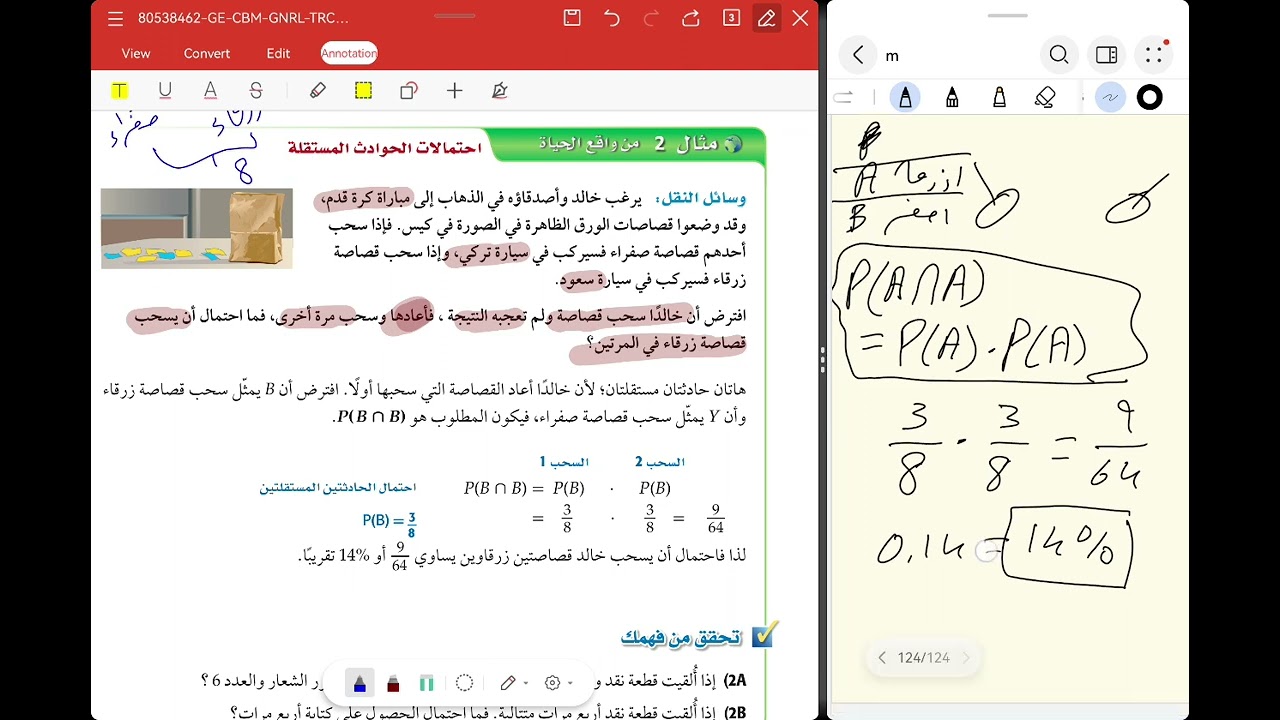 80538462-GE-CBM-GNRL-TRC...
3
View Convert Edit Annotation
T U A S
8
مثال 2 من واقع الحياة احتمالات الحوادث المستقلة
وسائل النقل: يرغب خالد وأصدقاؤه في الذهاب إلى مباراة كرة قدم،
وقد وضعوا قصاصات الورق الظاهرة في الصورة في كيس. فإذا سحب
أحدهم قصاصة صفراء فسيركب في سيارة تركي، وإذا سحب قصاصة
زرقاء فسيركب في سيارة سعود.
افترض أن خالدًا سحب قصاصة ولم تعجبه النتيجة ، فأعادها وسحب مرة أخرى، فما احتمال أن يسحب
قصاصة زرقاء في المرتين؟
هاتان حادثتان مستقلتان؛ لأن خالدًا أعاد القصاصة التي سحبها أولًا. افترض أن B يمثّل سحب قصاصة زرقاء
وأن Y يمثّل سحب قصاصة صفراء، فيكون المطلوب هو P(B ∩ B).
السحب 1 السحب 2
P(B ∩ B) = P(B) · P(B) احتمال الحادثتين المستقلتين
= 3/8 · 3/8 = 9/64 P(B) = 3/8
لذا فاحتمال أن يسحب خالد قصاصتين زرقاوين يساوي 9/64 أو 14% تقريبًا.
تحقق من فهمك
2A) إذا أُلقيت قطعة نقد و ور الشعار والعدد 6 ؟
2B) إذا أُلقيت قطعة نقد أربع مرات متتالية. فما احتمال الحصول على كتابة أربع مرات؟
m
A ازرقاء
B اصفر
P(A∩A)
= P(A) . P(A)
3/8 . 3/8 = 9/64
0,14 = 14%
124/124